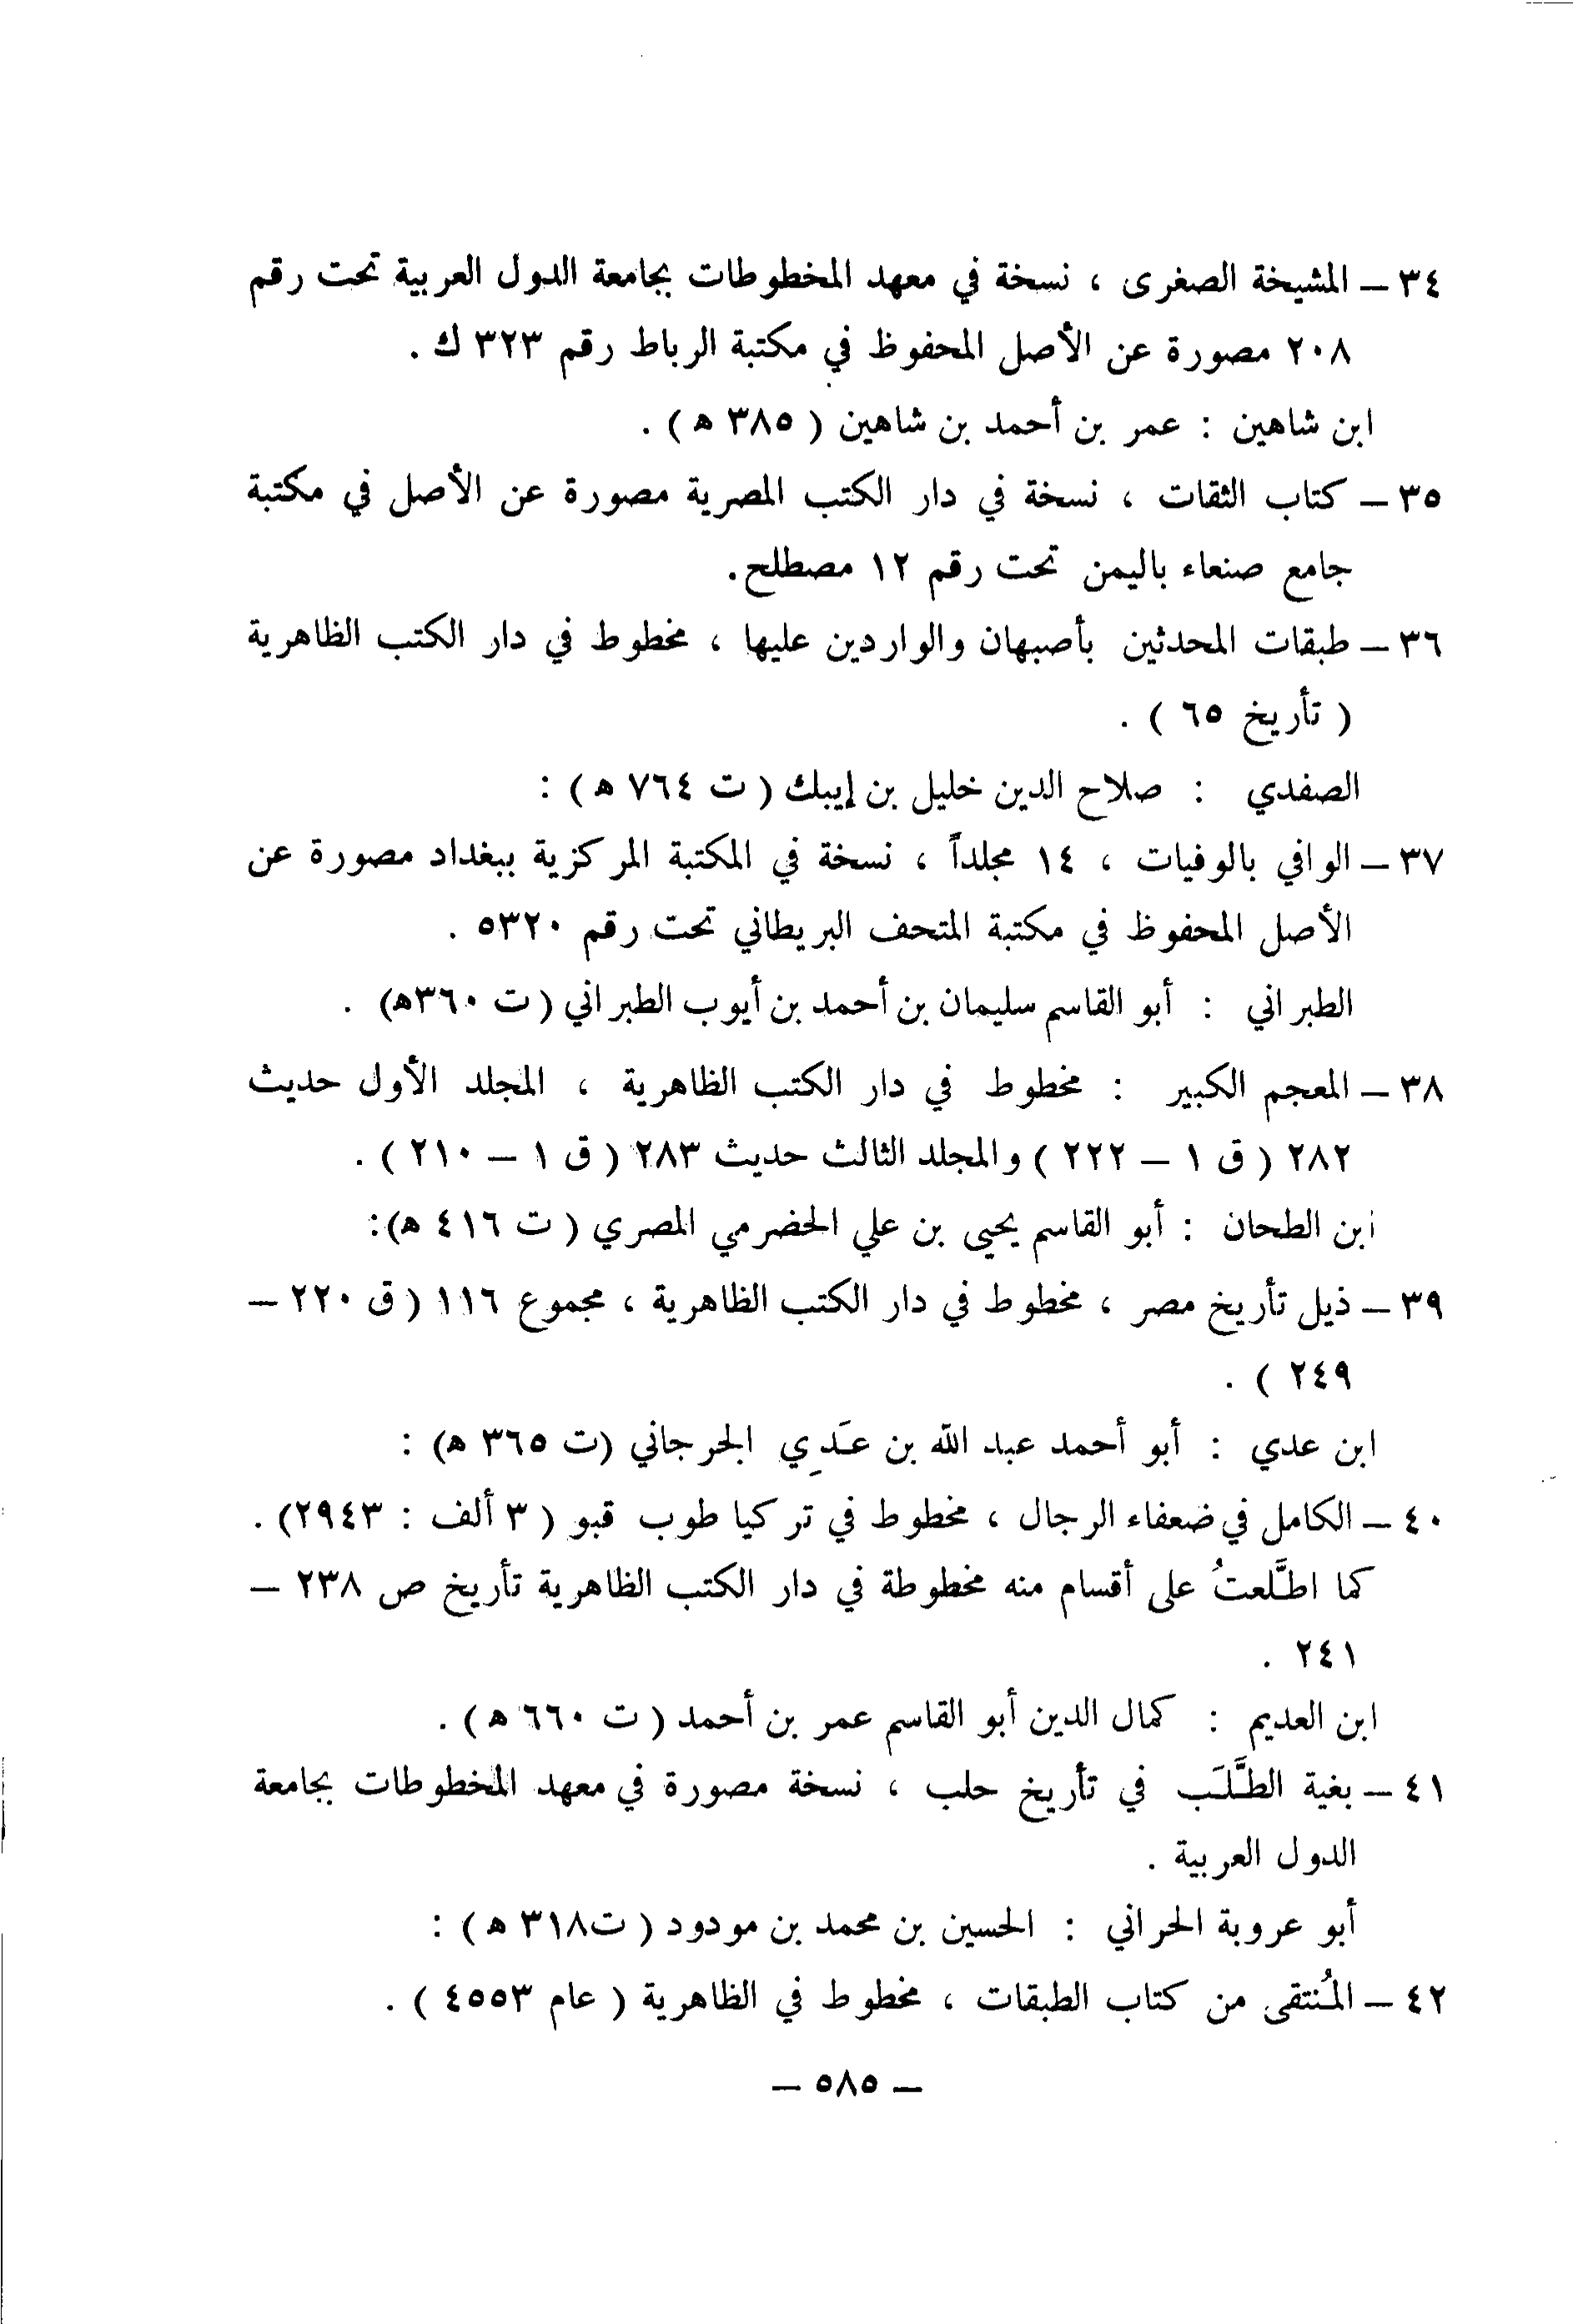 ٣٤ – المشيخة الصغرى ، نسخة في معهد المخطوطات بجامعة الدول العربية تحت رقم
٢٠٨ مصورة عن الأصل المحفوظ في مكتبة الرباط رقم ٣٢٣ ك .
ابن شاهين : عمر بن أحمد بن شاهين ( ٣٨٥ ه ) .
٣٥ – كتاب الثقات ، نسخة في دار الكتب المصرية مصورة عن الأصل في مكتبة
جامع صنعاء باليمن تحت رقم ١٢ مصطلح.
٣٦ – طبقات المحدثين بأصبهان والواردين عليها ، مخطوط في دار الكتب الظاهرية
( تأريخ ٦٥ ) .
الصفدي : صلاح الدين خليل بن إيبك ( ت ٧٦٤ ه ) :
٣٧ – الوافي بالوفيات ، ١٤ مجلداً ، نسخة في المكتبة المركزية ببغداد مصورة عن
الأصل المحفوظ في مكتبة المتحف البريطاني تحت رقم ٥٣٢٠ .
الطبراني : أبو القاسم سليمان بن أحمد بن أيوب الطبراني ( ت ٣٦٠ه) .
٣٨ – المعجم الكبير : مخطوط في دار الكتب الظاهرية ، المجلد الأول حديث
٢٨٢ ( ق ١ – ٢٢٢ ) والمجلد الثالث حديث ٢٨٣ ( ق ١ – ٢١٠ ) .
ابن الطحان : أبو القاسم يحيى بن علي الحضرمي المصري ( ت ٤١٦ ه):
٣٩ – ذيل تأريخ مصر ، مخطوط في دار الكتب الظاهرية ، مجموع ١١٦ ( ق ٢٢٠ –
٢٤٩ ) .
ابن عدي : أبو أحمد عبد الله بن عَدِي الجرجاني (ت ٣٦٥ ه) :
٤٠ – الكامل في ضعفاء الرجال ، مخطوط في تركيا طوب قبو ( ٣ ألف : ٢٩٤٣) .
كما اطَّلعتُ على أقسام منه مخطوطة في دار الكتب الظاهرية تأريخ ص ٢٣٨ –
٢٤١ .
ابن العديم : كمال الدين أبو القاسم عمر بن أحمد ( ت ٦٦٠ ه ) .
٤١ – بغية الطَّلَب في تأريخ حلب ، نسخة مصورة في معهد المخطوطات بجامعة
الدول العربية .
أبو عروبة الحراني : الحسين بن محمد بن مودود ( ت٣١٨ ه ) :
٤٢ – المُنتقى من كتاب الطبقات ، مخطوط في الظاهرية ( عام ٤٥٥٣ ) .
– ٥٨٥ –